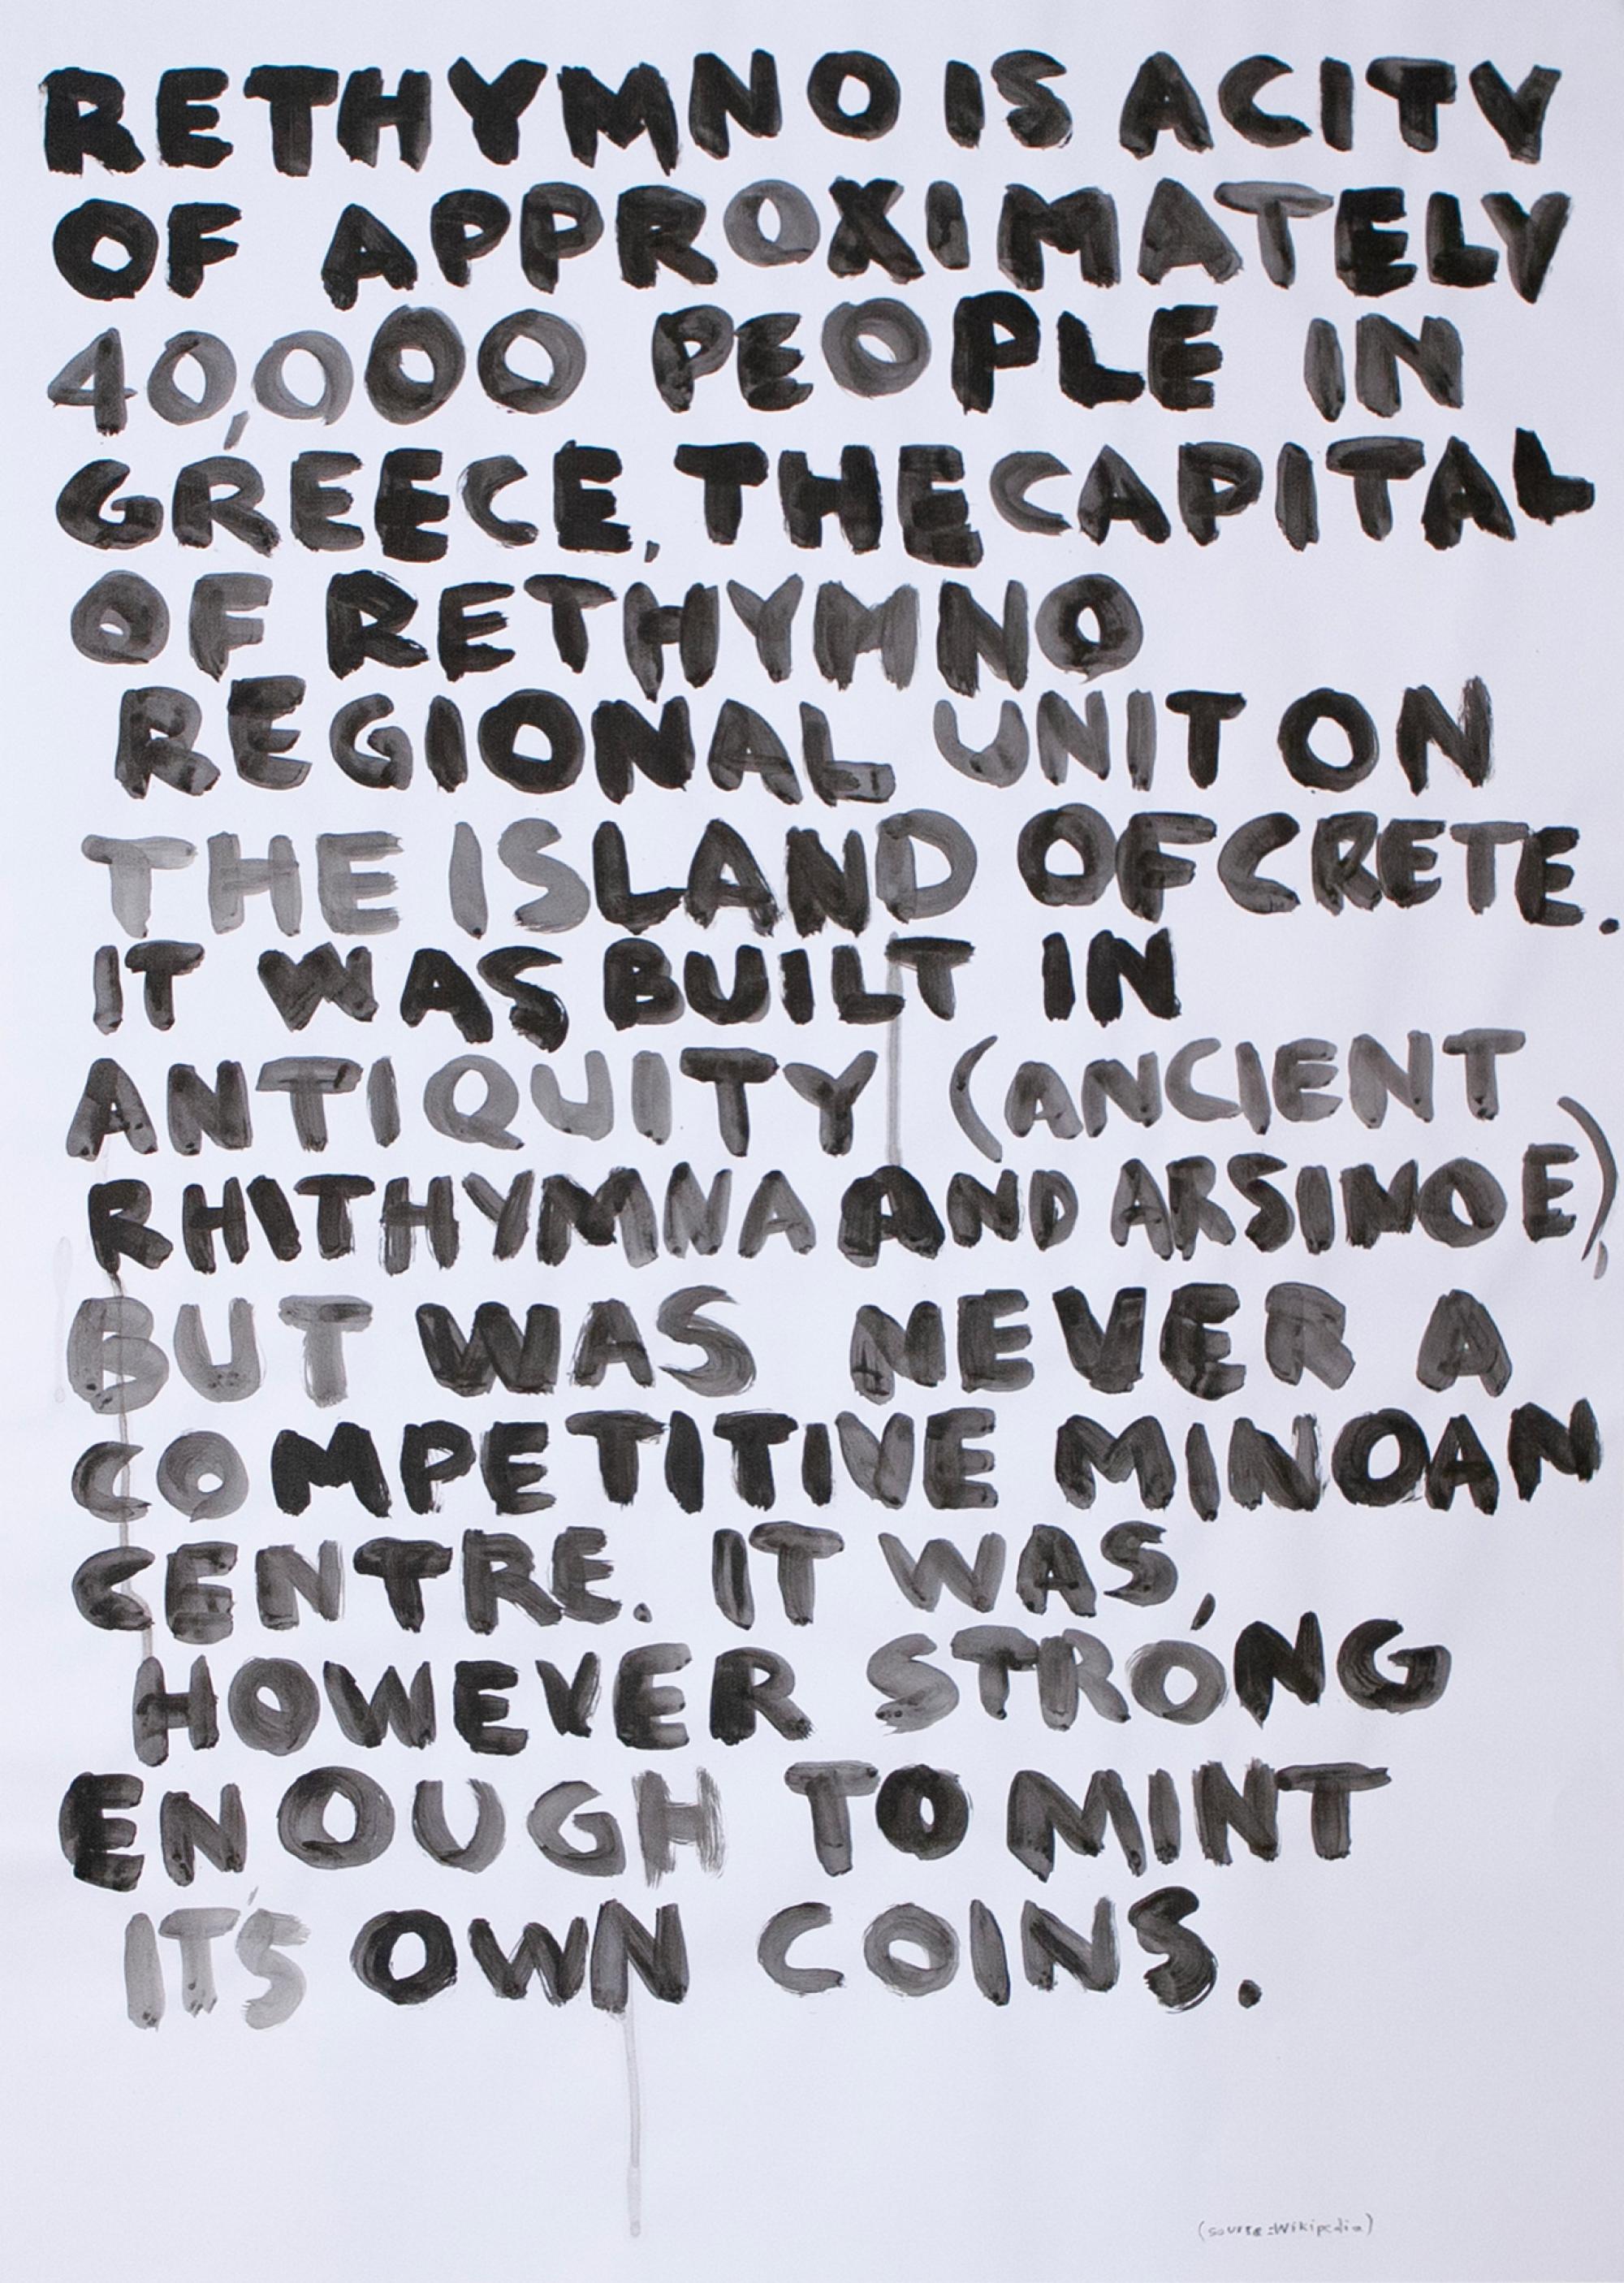 RETHYMNO IS A CITY
OF APPROXIMATELY
40,000 PEOPLE IN
GREECE, THE CAPITAL
OF RETHYMNO
REGIONAL UNIT ON
THE ISLAND OF CRETE.
IT WAS BUILT IN
ANTIQUITY (ANCIENT
RHITHYMNA AND ARSINOE),
BUT WAS NEVER A
COMPETITIVE MINOAN
CENTRE. IT WAS,
HOWEVER STRONG
ENOUGH TO MINT
IT'S OWN COINS.
(source: Wikipedia)